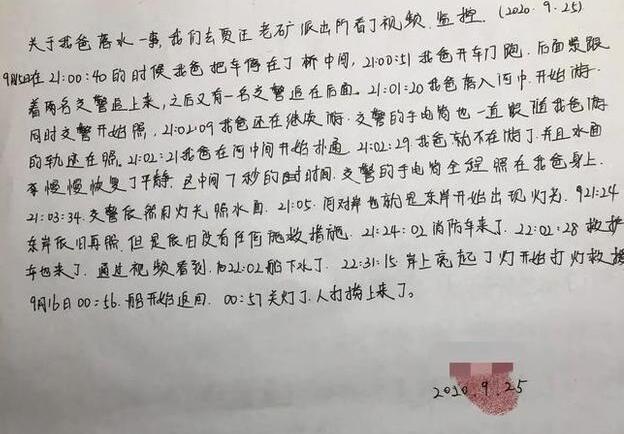 关于我爸落水一事,我们去贾汪老矿派出所看了视频 监控. (2020.9.25)
9月15日在21:00:40的时候我爸把车停在了桥中间, 21:00:51我爸开车门跑. 后面紧跟
着两名交警追上来, 之后又有一名交警追在后面. 21:01:20我爸落入河中. 开始游.
同时交警开始照, 21:02:09我爸还在继续游. 交警的手电筒也一直跟随我爸游
的轨迹在照. 21:02:21我爸在河中间开始扑通 21:02:29我爸就不在游了. 并且水面
慢慢恢复了平静. 这中间7秒的时间. 交警的手电筒全程照在我爸身上.
21:03:34. 交警依然用灯光照水面. 21:05. 河对岸也就是东岸开始出现灯光. 21:24
东岸依旧再照. 但是依旧没有任何施救措施. 21:24:02消防车来了. 22:02:28 救护
车也来了. 通过视频看到. 22:02船下水了. 22:31:15 岸上亮起了灯开始打灯救援
9月16日00:56. 船开始返回. 00:57关灯了. 人打捞上来了。
2020.9.25